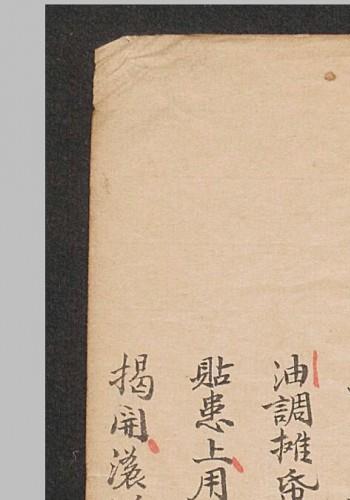 油調攤帋
貼患上用
揭開濃